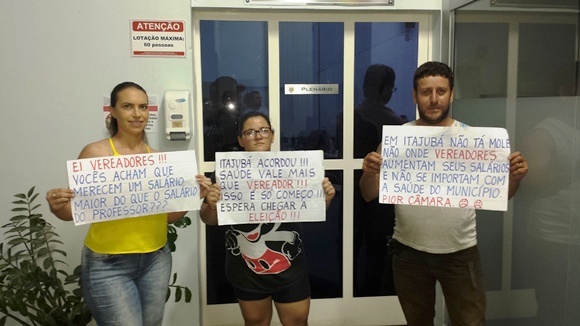 ATENÇÃO
LOTAÇÃO
MÁXIMA:
60 pessoas
PLENÁRIO
EI VEREADORES !!!
VOCÊS ACHAM QUE
MERECEM UM SALÁRIO
MAIOR DO QUE O SALÁRIO
DO PROFESSOR???
ITAJUBÁ ACORDOU !!!
SAÚDE VALE MAIS
QUE VEREADOR !!!
ISSO É SÓ COMEÇO !!
ESPERA CHEGAR A
ELEIÇÃO !!!
EM ITAJUBÁ NÃO TÁ MOLE
NÃO ONDE VEREADORES
AUMENTAM SEUS SALÁRIOS
E NÃO SE IMPORTAM COM
A SAÚDE DO MUNICÍPIO.
PIOR CÂMARA ☹ ☹